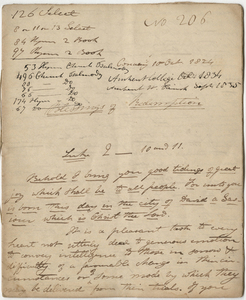 126 Select No 206
8 or 11 or 13 Select
86 Hymn 2 Book
97 Hymn 2 Book
53 Hymn Church Psalmody Conway 10 Oct 1834
496 Church Psalmody Amherst College Oct 1834
Amherst Church Sept 1835
174 Hymn
67
Blessings of Redemption
Luke 2 — 10 and 11.
Behold I bring you good tidings of great
joy which shall be to all people. For unto you
is born this day in the city of David a Sa-
viour which is Christ the Lord.
It is a pleasant task to every
heart not utterly dead to generous emotion
to convey intelligence to those in sorrow &
of a favourable change in their cir-
cumstances or some mode by which they
may be delivered from their